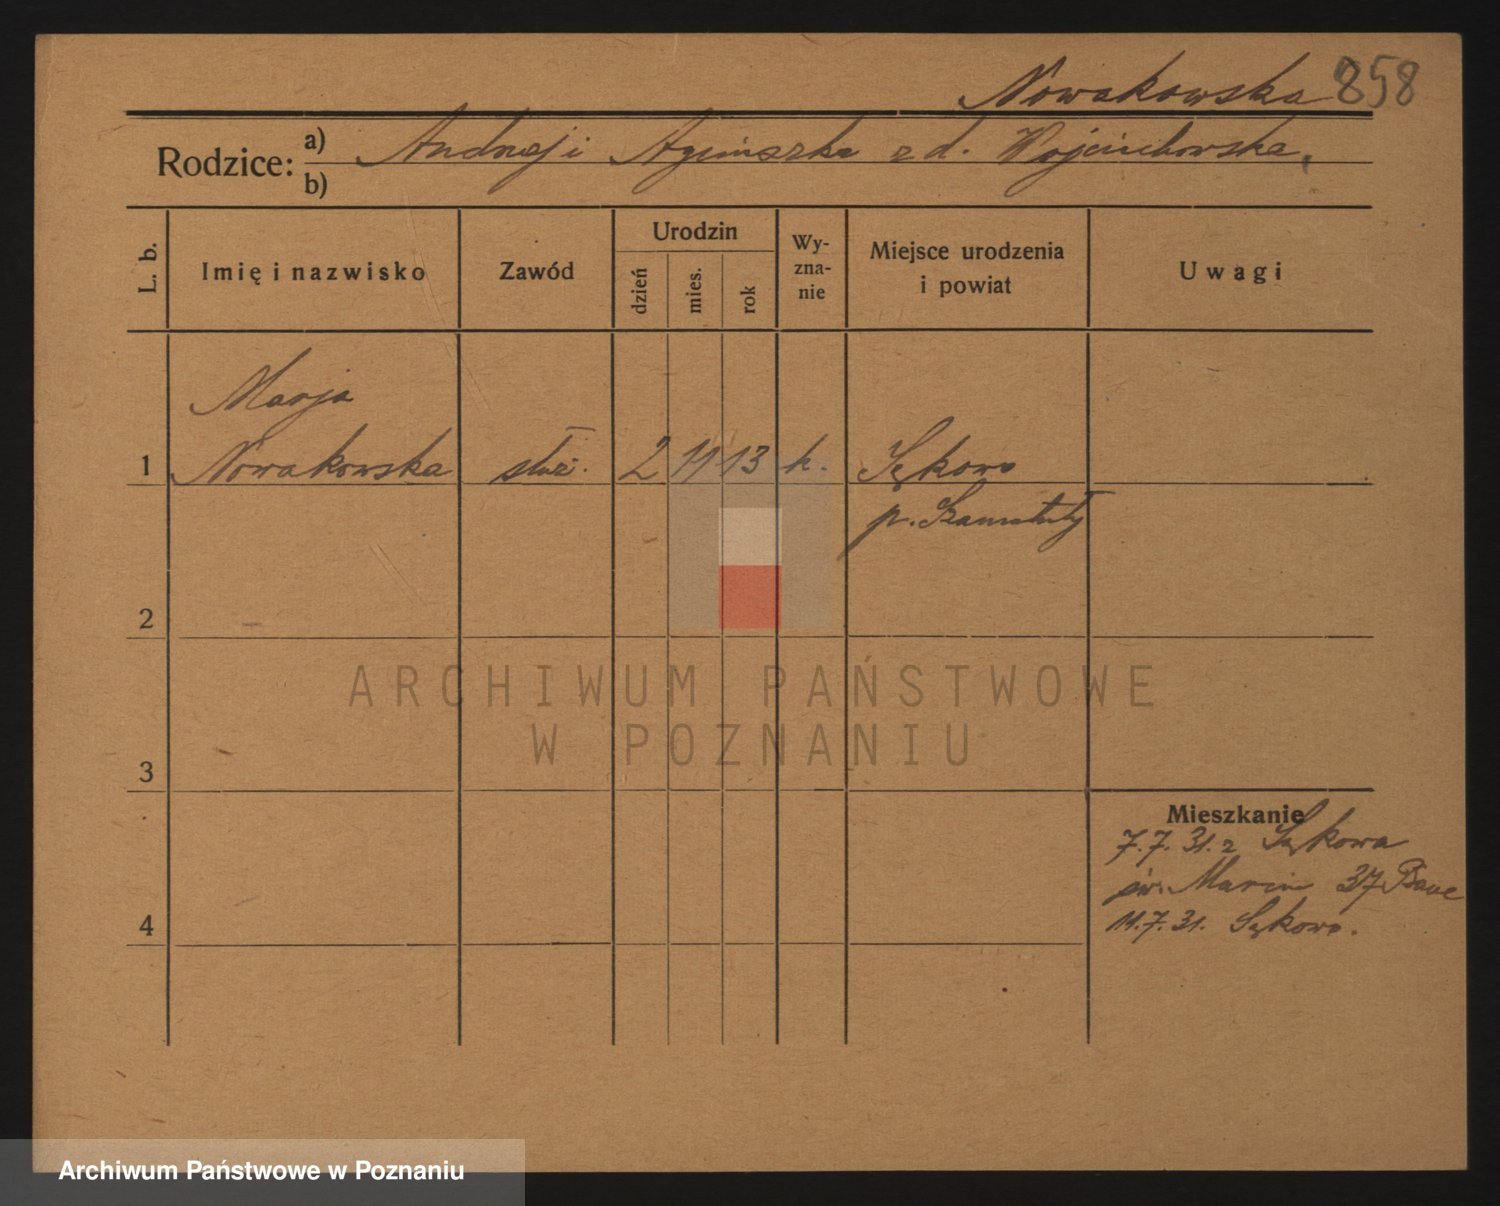 Nowakowska 858
Rodzice: a) Andrzej i Agnieszka z d. Wojciechowska.
b)
L. b.
Imię i nazwisko
Zawód
Urodzin
dzień
mies.
rok
Wy-
zna-
nie
Miejsce urodzenia
i powiat
Uwagi
Marja
1 Nowakowska służ. 2 11 13 k. Sękowo
p. Szamotuły
2
3
4
ARCHIWUM PAŃSTWOWE
W POZNANIU
Mieszkanie
7.7.31. z Sękowa
św. Marcin 37
11.7.31. Sękowo.
Archiwum Państwowe w Poznaniu